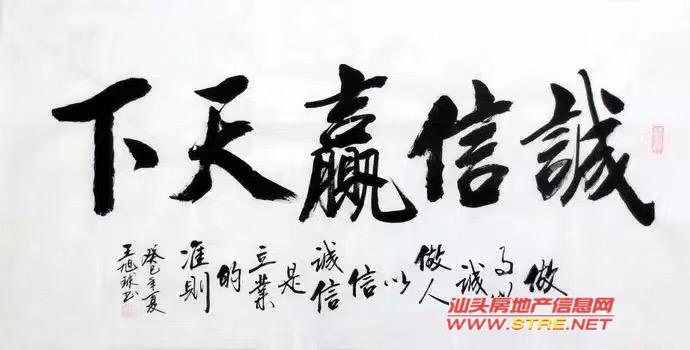 誠信贏天下
做事以诚做人以信诚信是立業的准則
癸巳年夏
王旭球书
汕头房地产信息网
WWW.STRE.NET